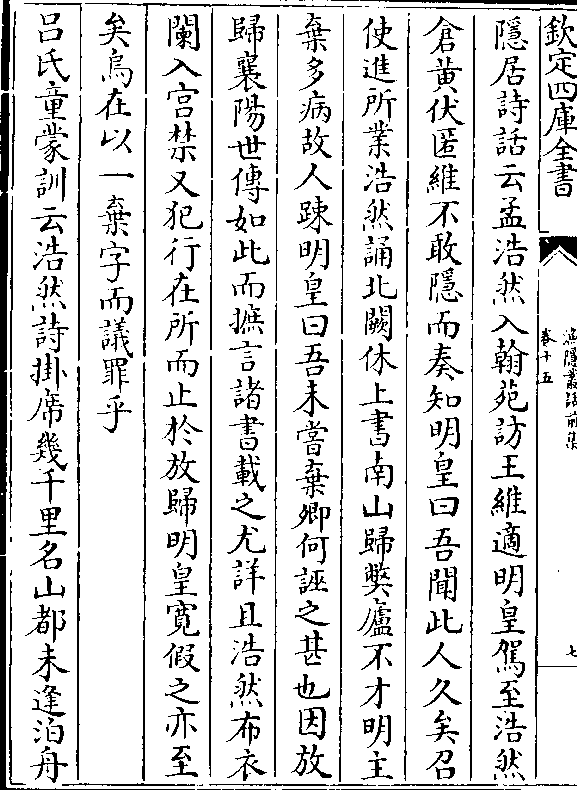 欽定四庫全書
漁隱叢話前集
卷十五
七
隱居詩話云孟浩然入翰苑訪王維適明皇駕至浩然
倉黄伏匿維不敢隱而奏知明皇曰吾聞此人久矣召
使進所業浩然誦北闕休上書南山歸弊廬不才明主
棄多病故人踈明皇曰吾未嘗棄卿何誣之甚也因放
歸襄陽世傳如此而摭言諸書載之尤詳且浩然布衣
闌入宫禁又犯行在所而止於放歸明皇寛假之亦至
矣烏在以一棄字而議罪乎
吕氏童蒙訓云浩然詩掛席幾千里名山都未逢泊舟